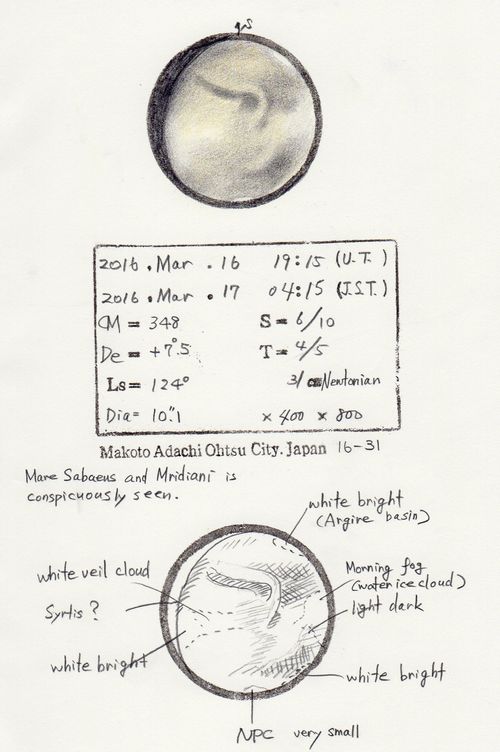 2016 . Mar . 16 19:15 (U.T.)
2016 . Mar . 17 04:15 (J.S.T.)
CM = 348 S = 6/10
De = +7°.5 T = 4/5
Ls = 124° 31 cm Newtonian
Dia = 10".1 × 400 × 800
Makoto Adachi Ohtsu City. Japan 16-31
Mare Sabaeus and Mridiani is
conspicuously seen.
white bright
(Argire basin)
white veil cloud
Morning fog
(water ice cloud)
Syrtis ?
light dark
white bright
white bright
NPC very small